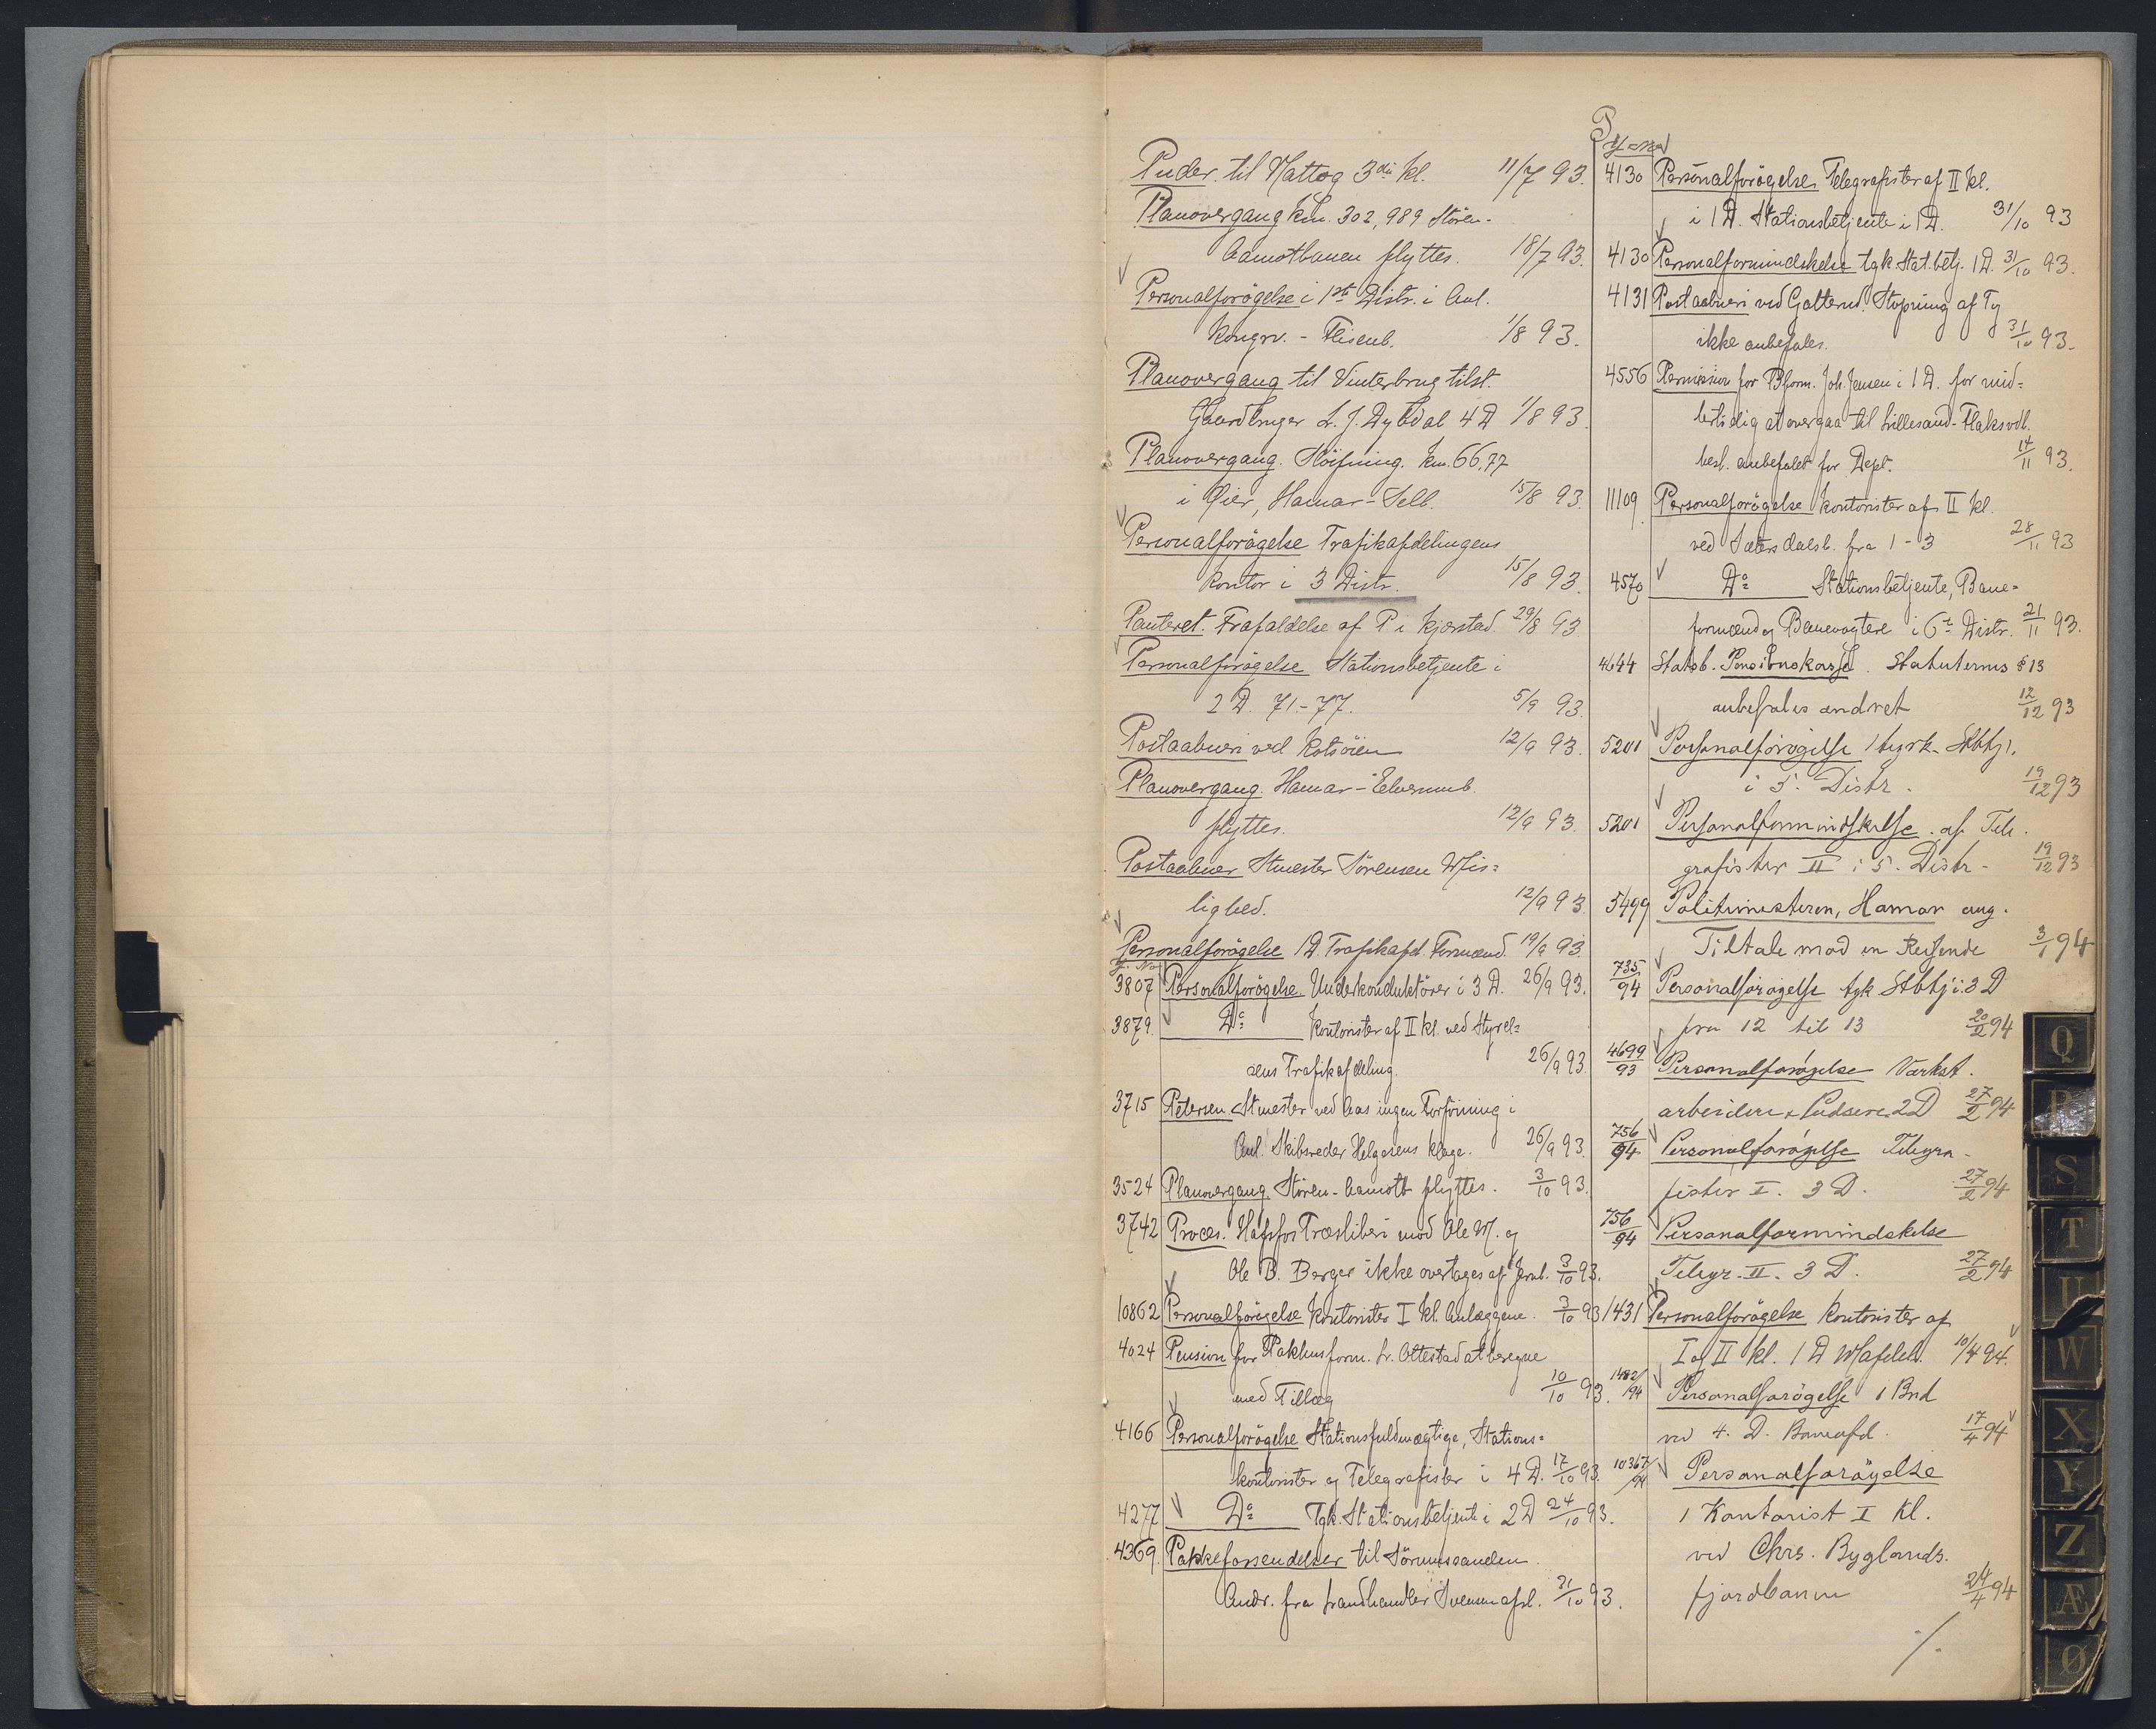 P
Puder til Nattog 3die kl. 11/7 93.
Planovergang km. 302,989 Støren-
Aamotbanen flyttes. 18/7 93.
Personalforøgelse i 1ste Distr. i Anl.
Kongsv. - Flisenb. 1/8 93.
Planovergang til Vinterbrug tilst.
Gaardbruger L. J. Dybdal 4 D 1/8 93.
Planovergang. Sløifning. km. 66,77
i Øier, Hamar-Selb. 15/8 93.
Personalforøgelse Trafikafdelingens
Kontor i 3 Distr. 15/8 93.
Panteret. Frafaldelse af P. i Kjørstad 29/8 93
Personalforøgelse Stationsbetjente i
2 D. 71-77. 5/9 93.
Postaabneri ved Kotsøien 12/9 93.
Planovergang. Hamar-Elverumb.
flyttes. 12/9 93.
Postaabner Stmester Sørensen Mis=
lighed. 12/9 93.
Personalforøgelse 1 D. Trafikafd. Formænd. 19/9 93.
J. No
3807 Personalforøgelse. Underkonduktører i 3 D. 26/9 93.
3879. Do Kontorister af II kl. ved Styrel=
sens Trafikafdeling. 26/9 93.
3715 Petersen Stmester ved Aas ingen Forføining i
Anl. Skibsreder Helgesens klage. 26/9 93.
3524 Planovergang. Støren-Aamott flyttes. 3/10 93.
3742 Proces. Hafsfos Træsliberi mod Ole M. og
Ole B. Berger ikke overtages af Jernb. 3/10 93.
10862 Personalforøgelse Kontorister I kl. Anlæggene. 3/10 93
4024 Pension for Pakhusform. Lr. Ottestad at beregne
med Tillæg 10/10 93.
4166 Personalforøgelse Stationsfuldmægtige, Stations=
kontorister og Telegrafister i 4 D. 17/10 93.
4277 Do Tgk. Stationsbetjente i 2 D 24/10 93.
4369. Pakkeforsendelser til Sørumssanden.
Andr. fra Landhandler Svensen afsl. 31/10 93.
J. No
4130 Personalforøgelse Telegrafister af II kl.
i 1 D. Stationsbetjente i 1 D. 31/10 93
4130 Personalformindskelse tgk. Stat.betj. 1 D. 31/10 93.
4131 Postaabneri ved Galterud. Stopning af Tg
ikke anbefales. 31/10 93.
4556 Permission for Bform. Joh. Jensen i 1 D. for mid=
lertidig at overgaa til Lillesand-Flaksvdb.
besl. anbefalet for Dept. 14/11 93.
11109 Personalforøgelse Kontorister af II kl.
ved Sætersdalsb. fra 1-3 28/11 93
4570 Do Stationsbetjente, Bane=
formænd og Banevogtere i 6te Distr. 21/11 93.
4644 Statsb. Pensionskasse. Statuternes § 13
anbefales ændret 12/12 93
5201 Personalforøgelse 1 tgk. Stbtj.
i 5. Distr. 19/12 93
5201 Personalformindskelse. af Tele.
grafister II i 5. Distr. 19/12 93
5499 Politimesteren, Hamar ang.
Tiltale mod en Reisende 3/1 94
735/94 Personalforøgelse tgk Stbtj i 3 D
fra 12 til 13 20/2 94
4699/93 Personalforøgelse Værkst.
arbeidere & Pudsere 2 D 27/2 94
756/94 Personalforøgelse Telegra-
fister I. 3 D. 27/2 94
756/94 Personalformindskelse
Telegr. II. 3 D. 27/2 94
1431 Personalforøgelse Kontorister af
I og II kl. 1 D Mafdel. 10/4 94.
1482/94 Personalforøgelse 1 Bnd
ved 4. D. Baneafd. 17/4 94
10367/94 Personalforøgelse
1 Kontorist I Kl.
ved Chrs. Byglands.
fjordbanen 24/4 94
./.
Q
R
S
T
U
W
X
Y
Z
Æ
Ø